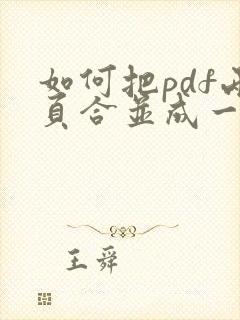 如何把pdf两
页合並成一
王舜